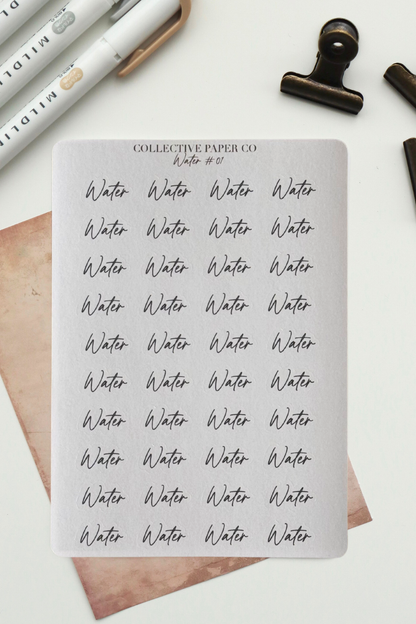 MILDLI
MILDLIN
MILDLI
COLLECTIVE PAPER CO
Water #01
Water Water Water Water
Water Water Water Water
Water Water Water Water
Water Water Water Water
Water Water Water Water
Water Water Water Water
Water Water Water Water
Water Water Water Water
Water Water Water Water
Water Water Water Water